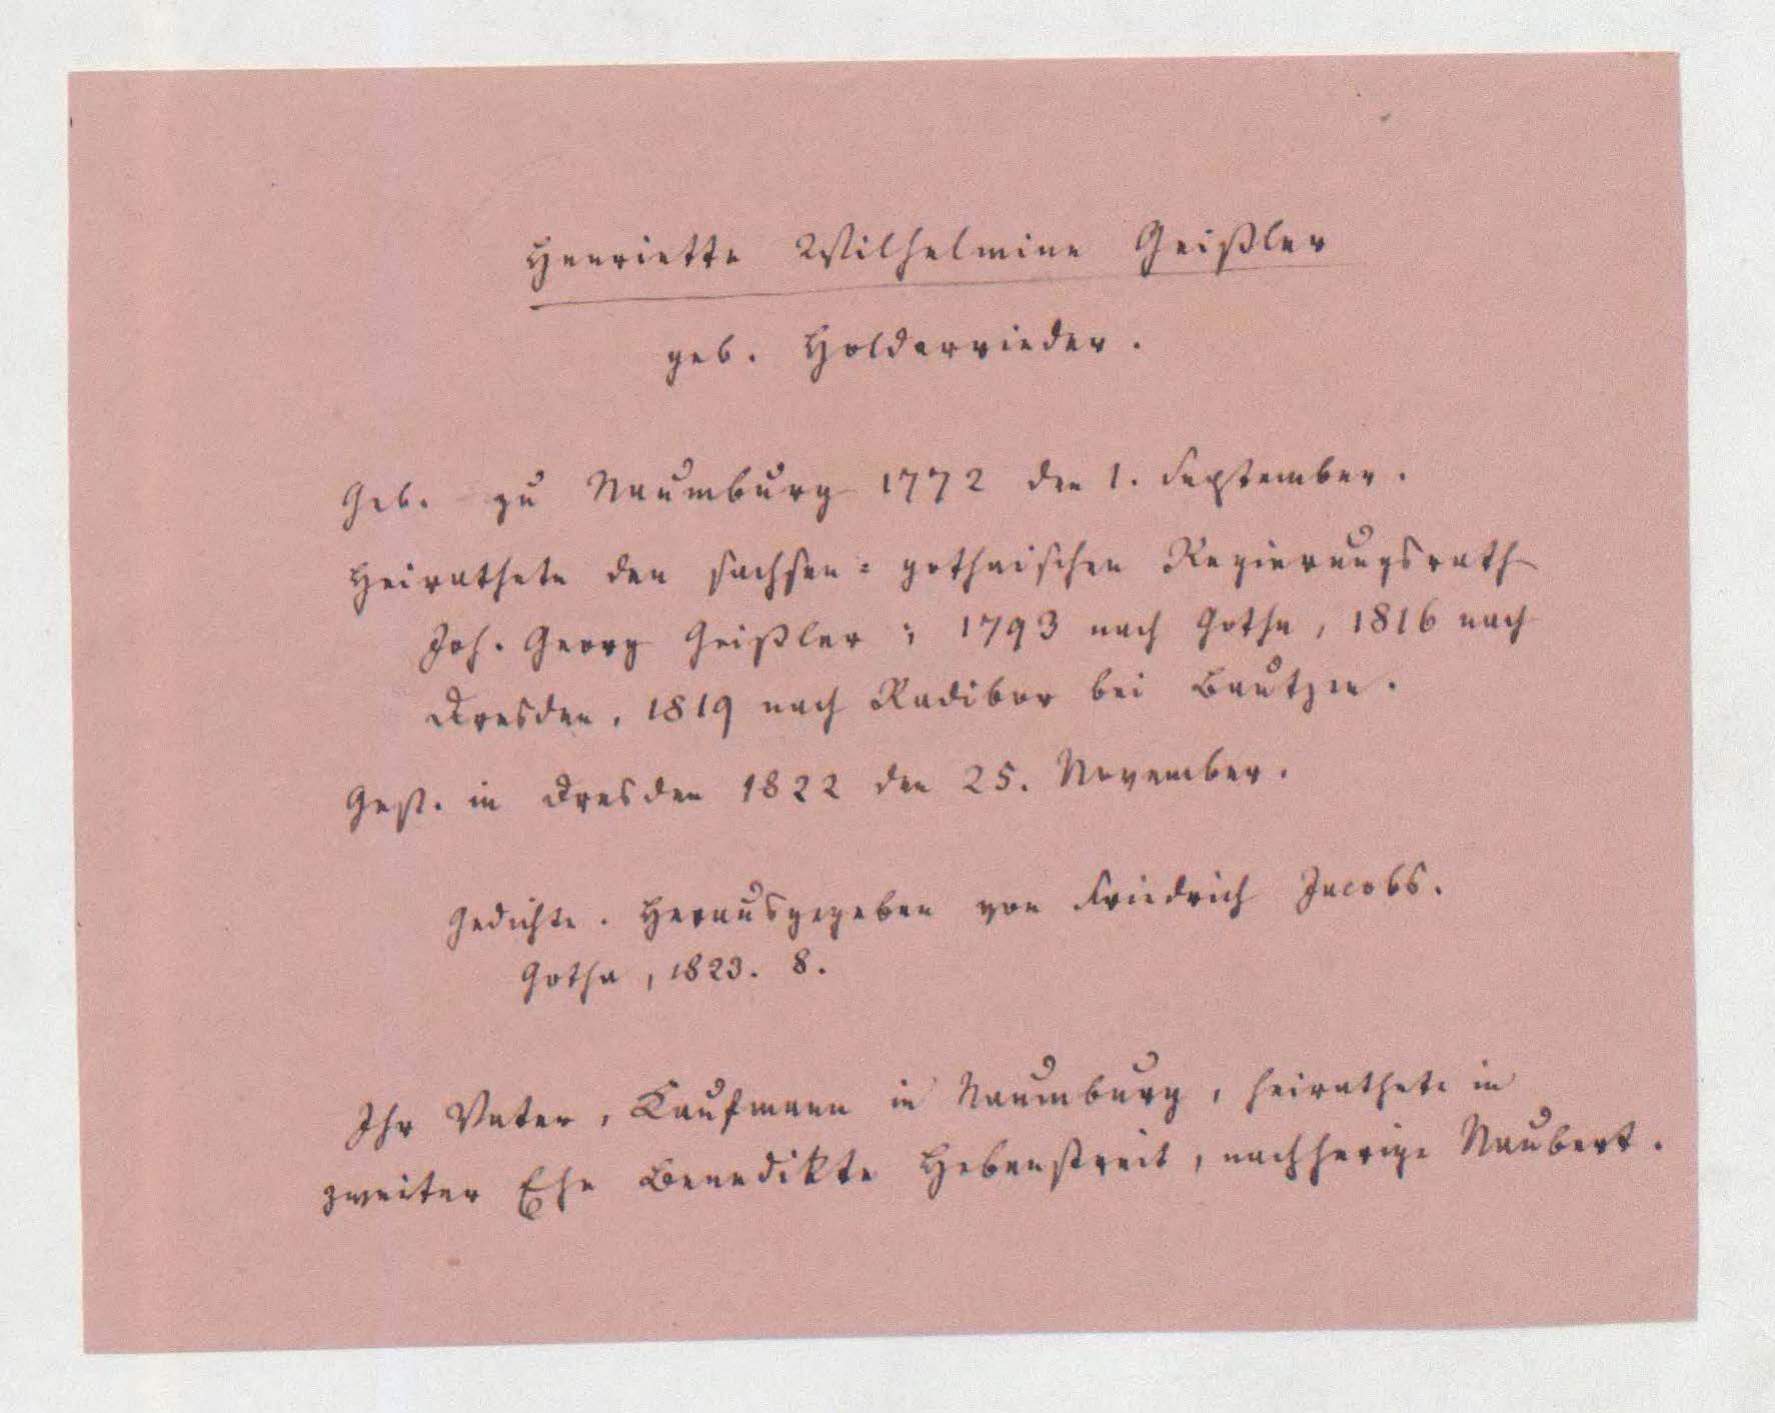 Henriette Wilhelmine Geißler
geb. Holderrieder.
Geb. zu Naumburg 1772 den 1. September.
Heirathete den sachsen-gothaischen Regierungsrath
Joh. Georg Geißler; 1793 nach Gotha, 1816 nach
Dresden, 1819 nach Radibor bei Bautzen.
Gest. in Dresden 1822 den 25. November.
Gedichte. Herausgegeben von Friedrich Jacobs.
Gotha, 1823. 8.
Ihr Vater, Kaufmann in Naumburg, heirathete in
zweiter Ehe Benedikte Hebenstreit, nachherige Naubert.